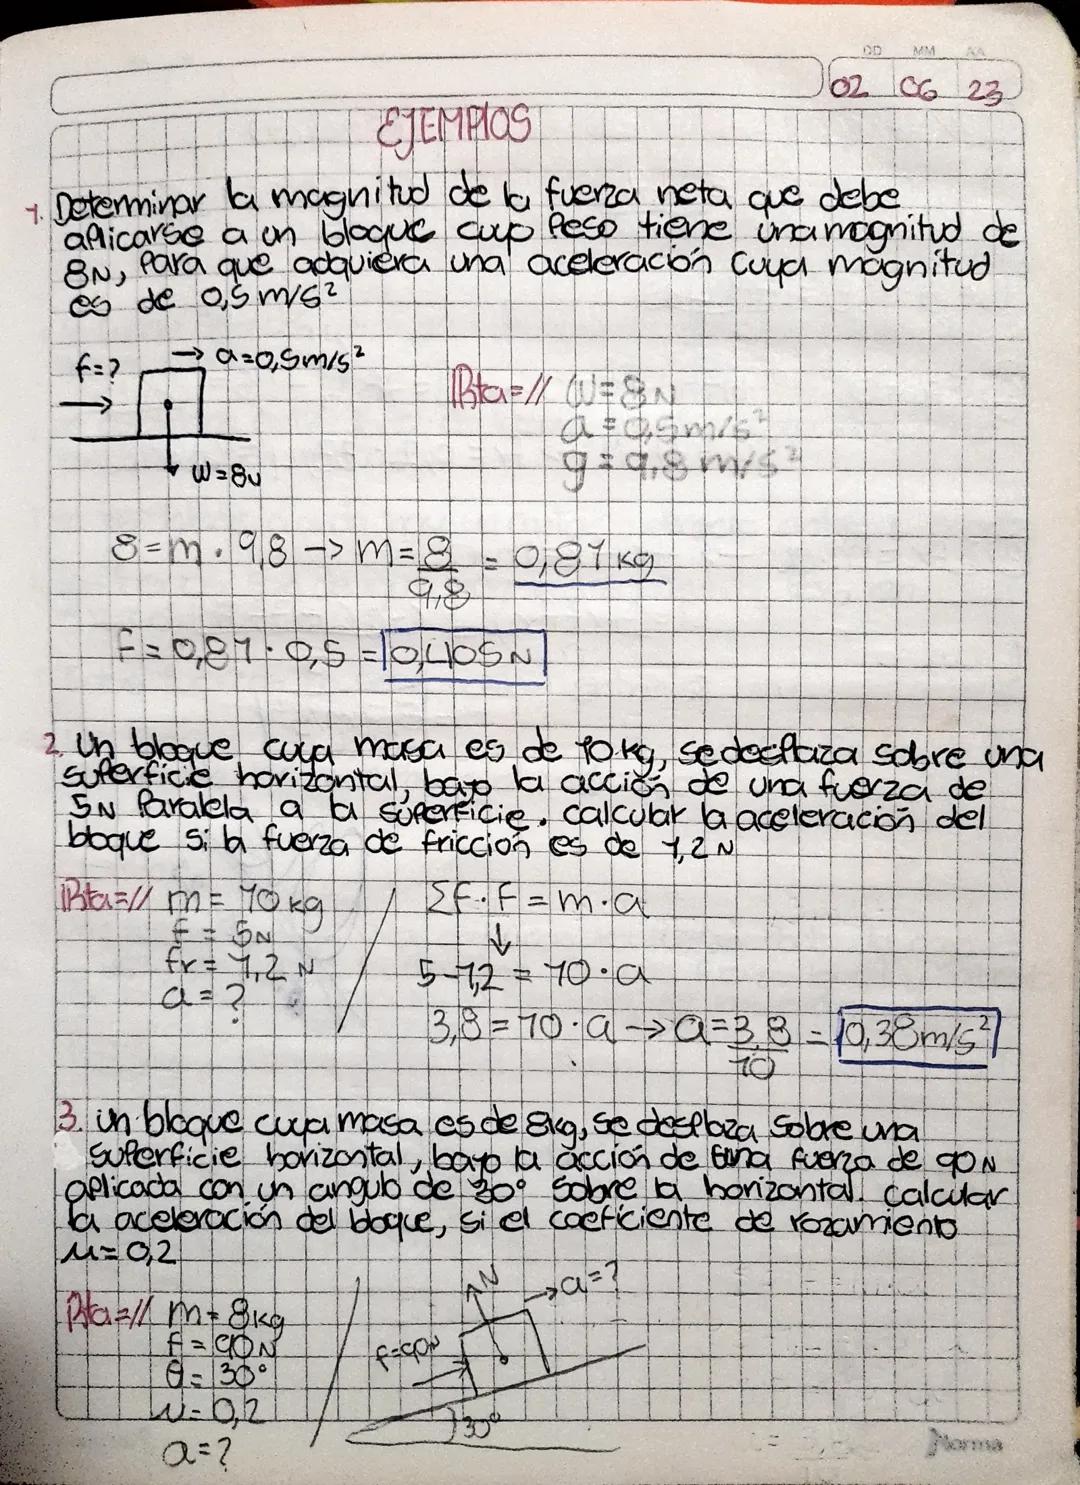 DD MM AA
02 06 23
EJEMPlOS
1. Determinar la magnitud de la fuerza neta que debe
aplicarse a un bloque cuyo Peso tiene una magnitud de
8N, Para que adquiera una aceleración cuya magnitud
es de 0,5 m/s²
f=? → a=0,5m/s²
W=8N
Rta=// W=8N
a=0,5m/s²
g=9,8 m/s²
8=m.9,8 → m=8/9,8 = 0,81 kg
F=0,81·0,5=0,405N
2. Un bloque cuya masa es de 10 kg, se desplaza sobre una
superficie horizontal, bajo la acción de una fuerza de
5N Paralela a la superficie. calcular la aceleración del
bloque si la fuerza de fricción es de 1,2 N
Rta=// m= 10 kg
f = 5N
fr= 1,2 N
a=?
Σf.F=m.a
↓
5-1,2 = 10·a
3,8=10·a → a=3,8/10 = 0,38m/s²
3. un bloque cuya masa es de 8kg, se desplaza sobre una
superficie horizontal, bajo la acción de una fuerza de 90N
aplicada con un angulo de 30° sobre la horizontal. calcular
la aceleración del bloque, si el coeficiente de rozamiento
μ=0,2
Rta=// m=8kg
f=90N
θ=30°
μ=0,2
a=?
N → a=?
f=90N
30°
Norma